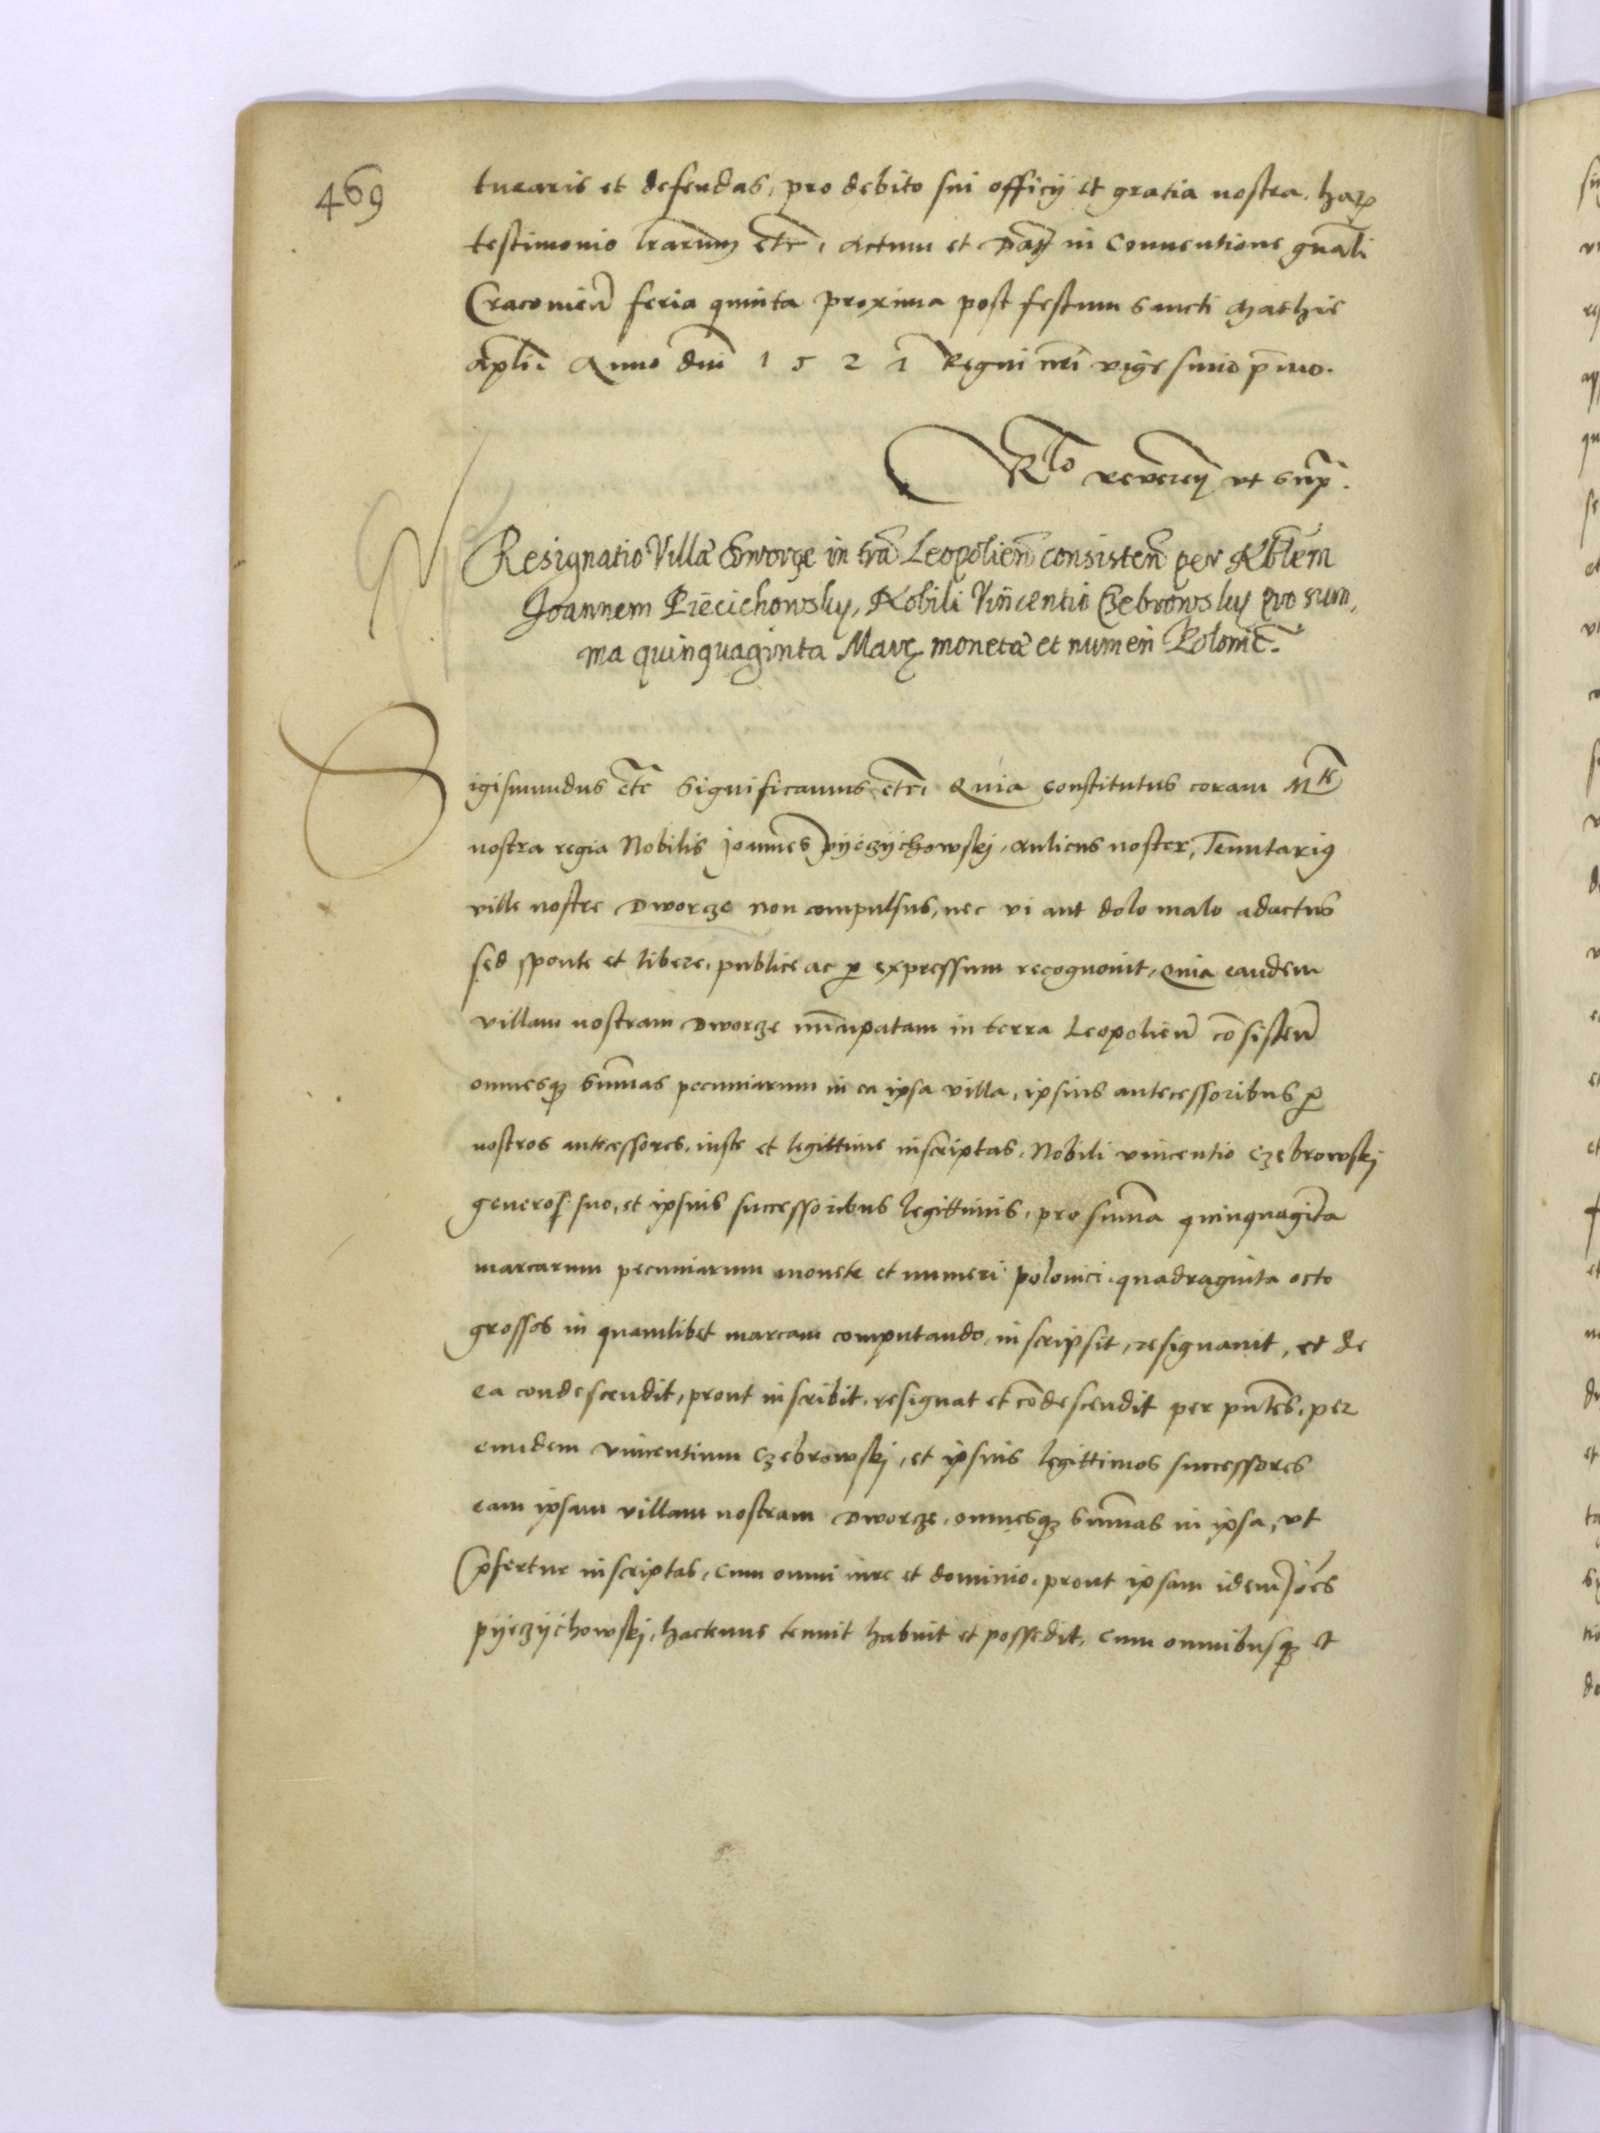 469
tuearis et defendas, pro debito sui officij et gratia nostra. harum
testimonio lrarum etc. Actum et Datum in Conventione gnali
Cracovien feria quinta proxima post festum Sancti Mathie
Apli. Anno dni 1521 Regni nri vigesimo primo.
Rlo reverend ut supra.
Resignatio Villæ Dworze in tra Leopolien consisten per Nobilem
Joannem Piecichowsky, Nobili Vincentio Czebrowsky pro sum,
ma quinquaginta Marc. monetæ et numeri Polonic.
Sigismundus etc Significamus etc. Quia constitutus coram Mte
nostra regia Nobilis Joannes pijeczijchowskj, aulicus noster, Tenutarius
ville nostre Dworze non compulsus, nec vi aut dolo malo adactus
sed sponte et libere, publice ac per expressum recognovit, Quia eandem
villam nostram Dworze nuncupatam in terra Leopolien consisten
omnesque summas pecuniarum in ea ipsa villa, ipsius antecessoribus per
nostros antecessores, iuste et legittime inscriptas, Nobili vincentio czebrowskj
generos. suo, et ipsius successoribus legittimis, pro summa quinquaginta
marcarum pecuniarum monete et numeri polonici quadraginta octo
grossos in quamlibet marcam computando, inscripsit, resignavit, et de
ea condescendit, prout inscribit, resignat et condescendit per pntes, per
eundem vincentium czebrowskj, et ipsius legittimos successores
eam ipsam villam nostram Dworze, omnesque summas in ipsa, ut
prefertur inscriptas, cum omni iure et dominio, prout ipsam idem Joes
pijeczijchowskj, hactenus tenuit habuit et possedit, cum omnibusque et